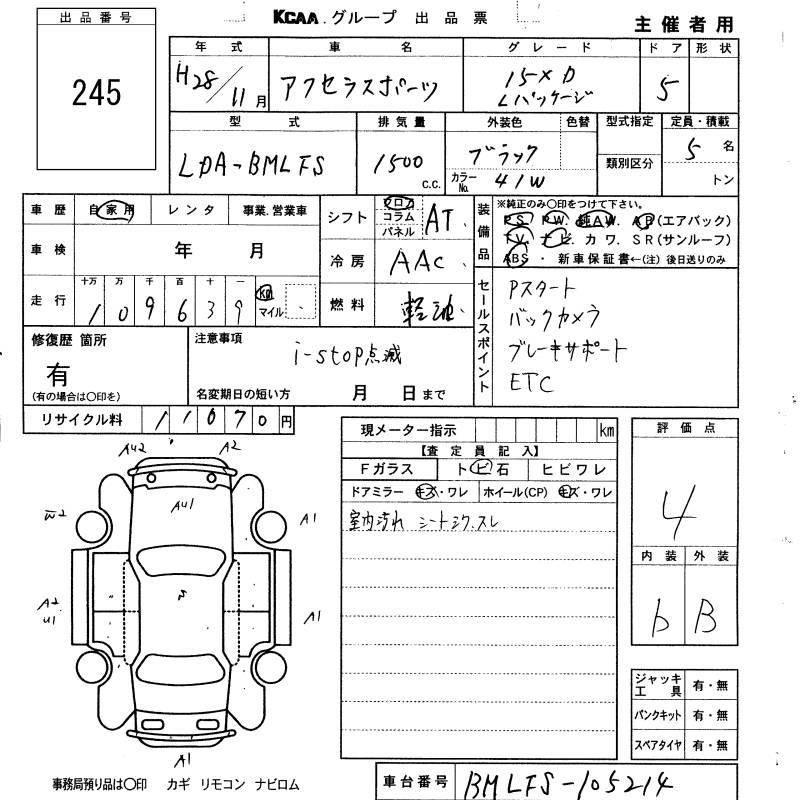 出品番号
245
KCAA.グループ 出品票
主催者用
年式 車名 グレード ドア 形状
H28/11月 アクセラスポーツ 15XD Lパッケージ 5
型式 排気量 外装色 色替 型式指定 定員・積載
LDA-BMLFS 1500 C.C. ブラック 類別区分 5名
カラーNo. 41W トン
車歴 自家用 レンタ 事業.営業車
シフト フロア コラム パネル AT
装備品 ※純正のみ〇印をつけて下さい。
PS. PW. 純AW. AB(エアバック)
TV. ナビ. カワ. SR(サンルーフ)
ABS・新車保証書←(注) 後日送りのみ
車検 年 月
冷房 AAC
走行 十万 万 千 百 十 一
109639 km マイル
燃料 軽油
セールスポイント
Pスタート
バックカメラ
ブレーキサポート
ETC
修復歴 箇所
有
(有の場合は〇印を)
注意事項
i-stop点滅
名変期日の短い方 月 日まで
リサイクル料 11070円
現メーター指示 km
【査定員記入】
Fガラス トビ石 ヒビワレ
ドアミラー キズ・ワレ ホイール(CP) キズ・ワレ
室内汚れ シートシワ.スレ
評価点
4
内装 外装
b B
AU2 A2
AU1
A1
A2
U1
A1
A1
ジャッキ工具 有・無
パンクキット 有・無
スペアタイヤ 有・無
事務局預り品は〇印 カギ リモコン ナビロム
車台番号 BMLFS-105214